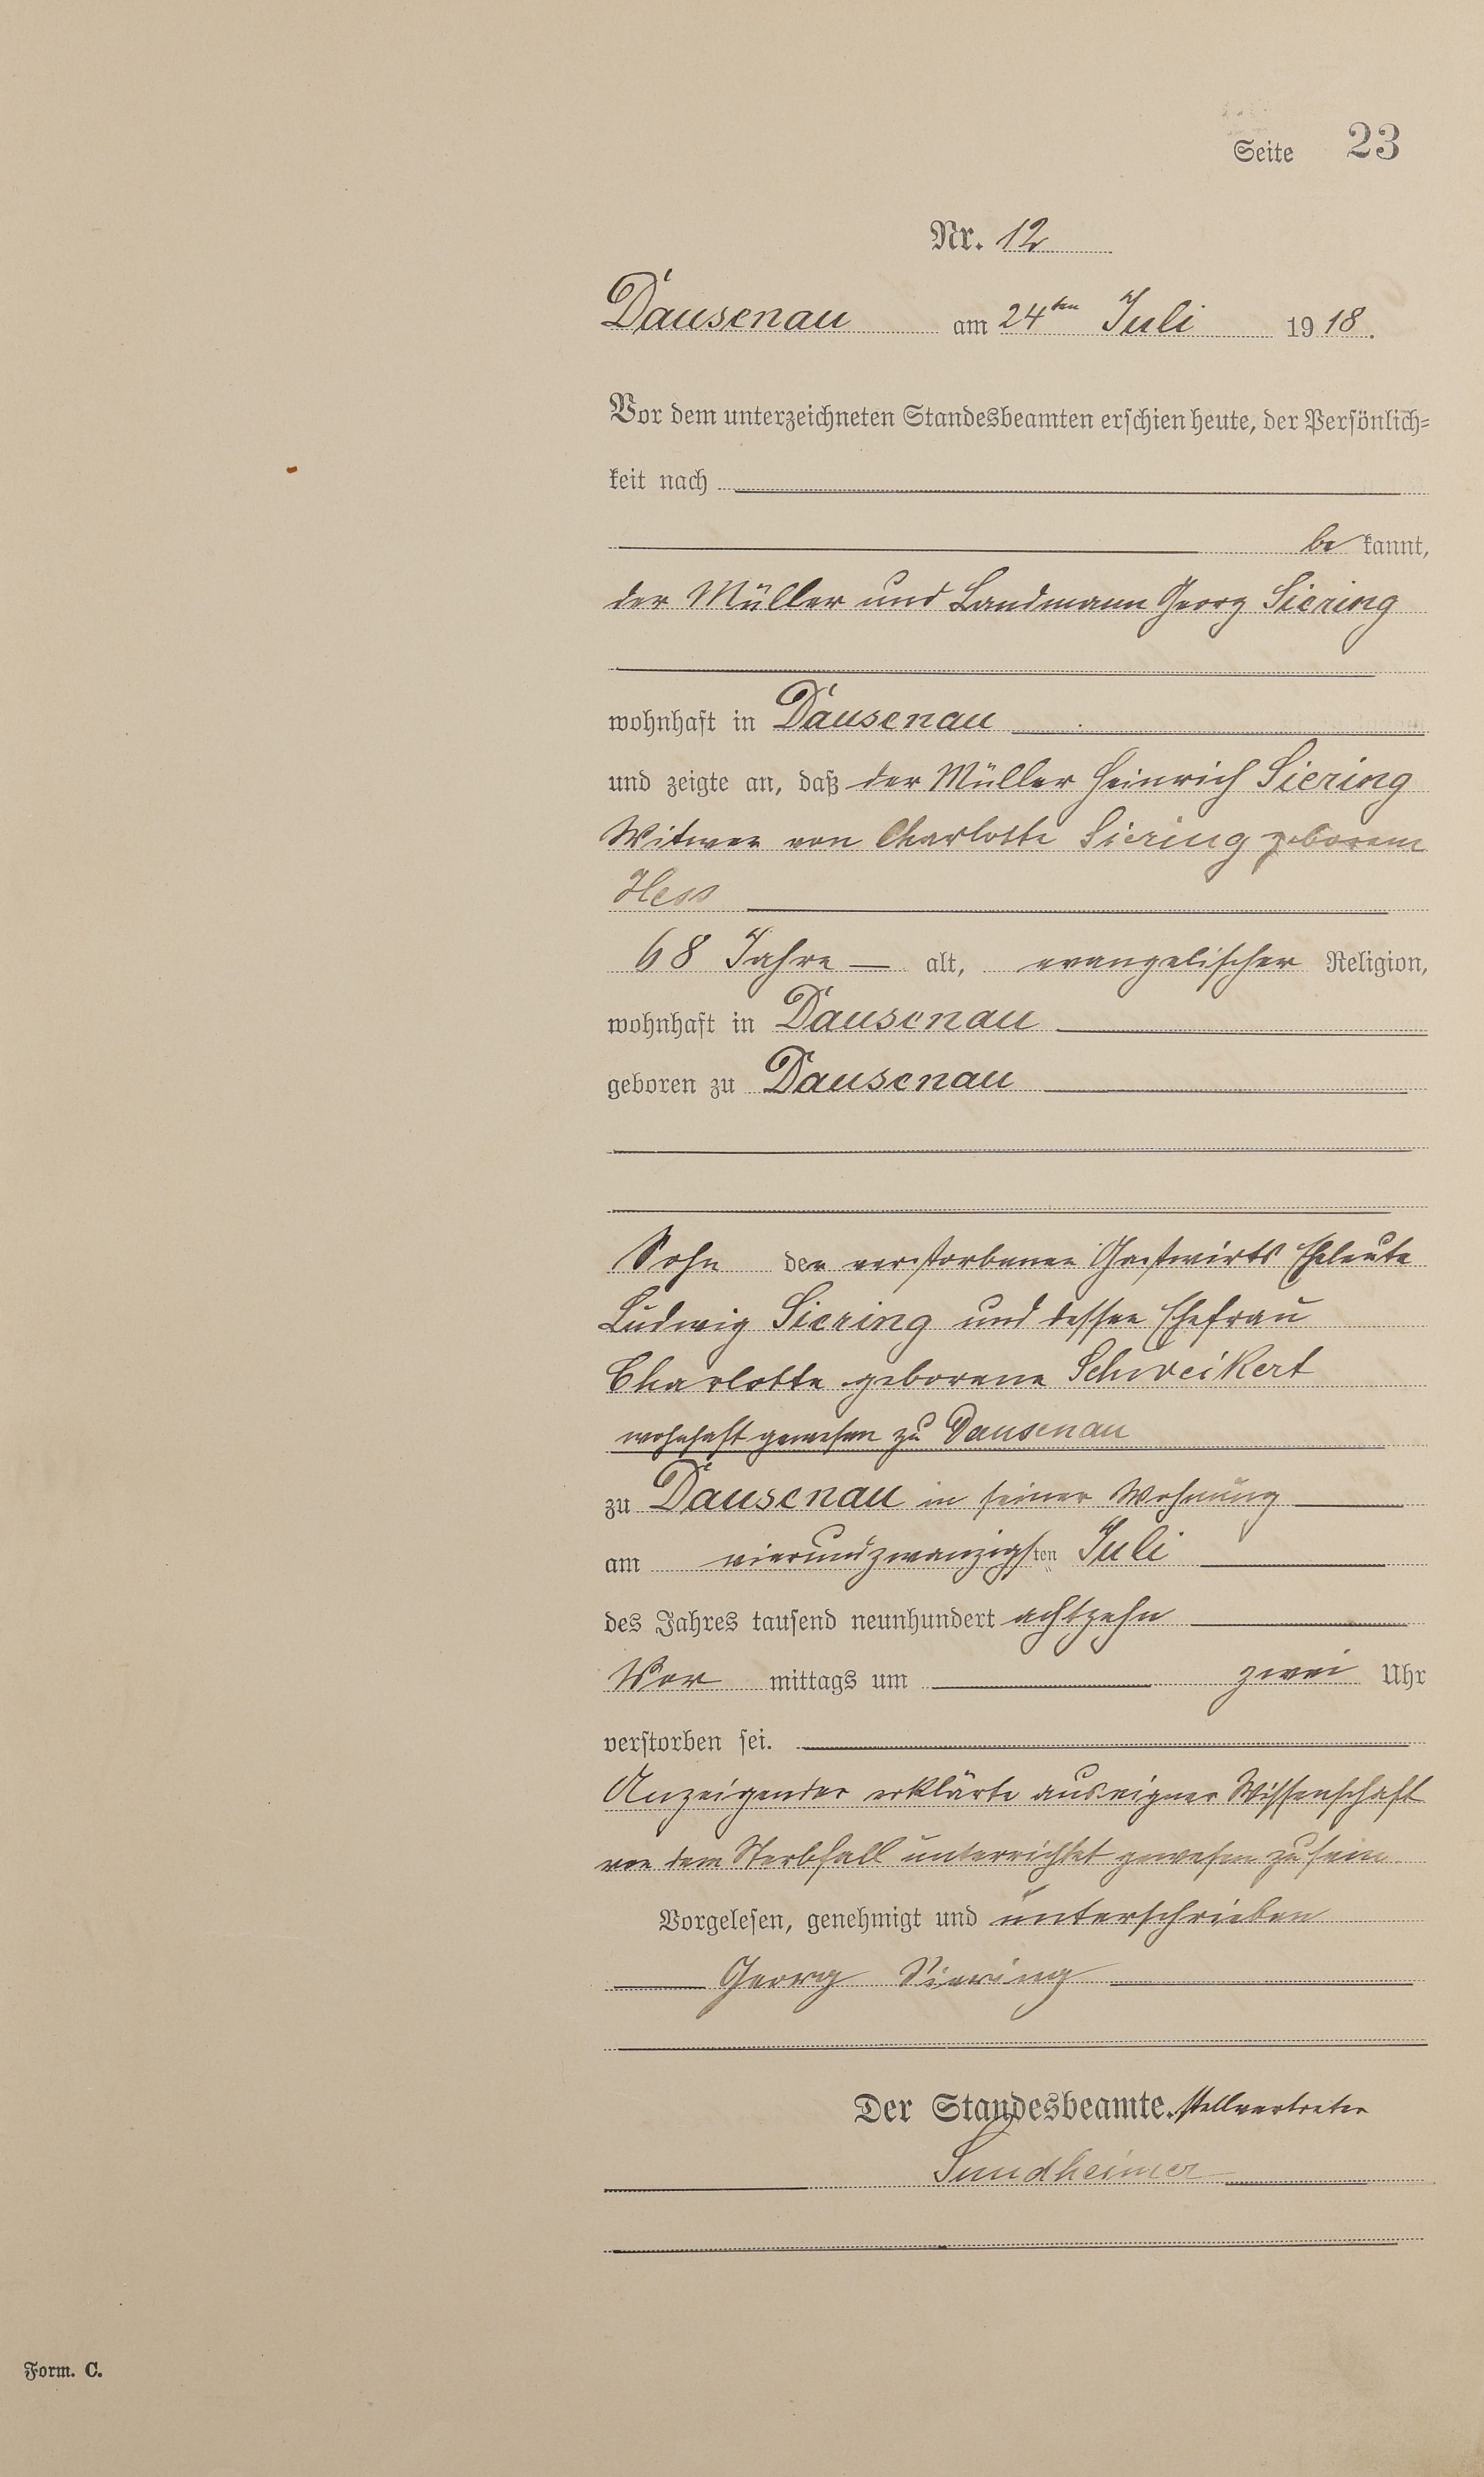 Seite 23
Nr. 12
Dausenau am 24ten Juli 1918.
Vor dem unterzeichneten Standesbeamten erschien heute, der Persönlich=
keit nach
be kannt,
der Müller und Landmann Georg Siering
wohnhaft in Dausenau
und zeigte an, daß der Müller Heinrich Siering
Witwer von Charlotte Siering geborene
Hess
68 Jahre — alt, evangelischer Religion,
wohnhaft in Dausenau
geboren zu Dausenau
Sohn der verstorbenen Gastwirts Eheleute
Ludwig Siering und dessen Ehefrau
Charlotte geborene Schweikert
wohnhaft gewesen zu Dausenau
zu Dausenau in seiner Wohnung
am vierundzwanzigsten Juli
des Jahres tausend neunhundert achtzehn
Vor mittags um zwei Uhr
verstorben sei.
Anzeigender erklärte aus eigner Wissenschaft
von dem Sterbfall unterrichtet gewesen zu sein
Vorgelesen, genehmigt und unterschrieben
Georg Siering
Der Standesbeamte. stellvertreter
Sundheimer
Form. C.